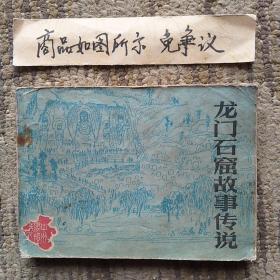 商品如图所示 免争议
龙门石窟故事传说